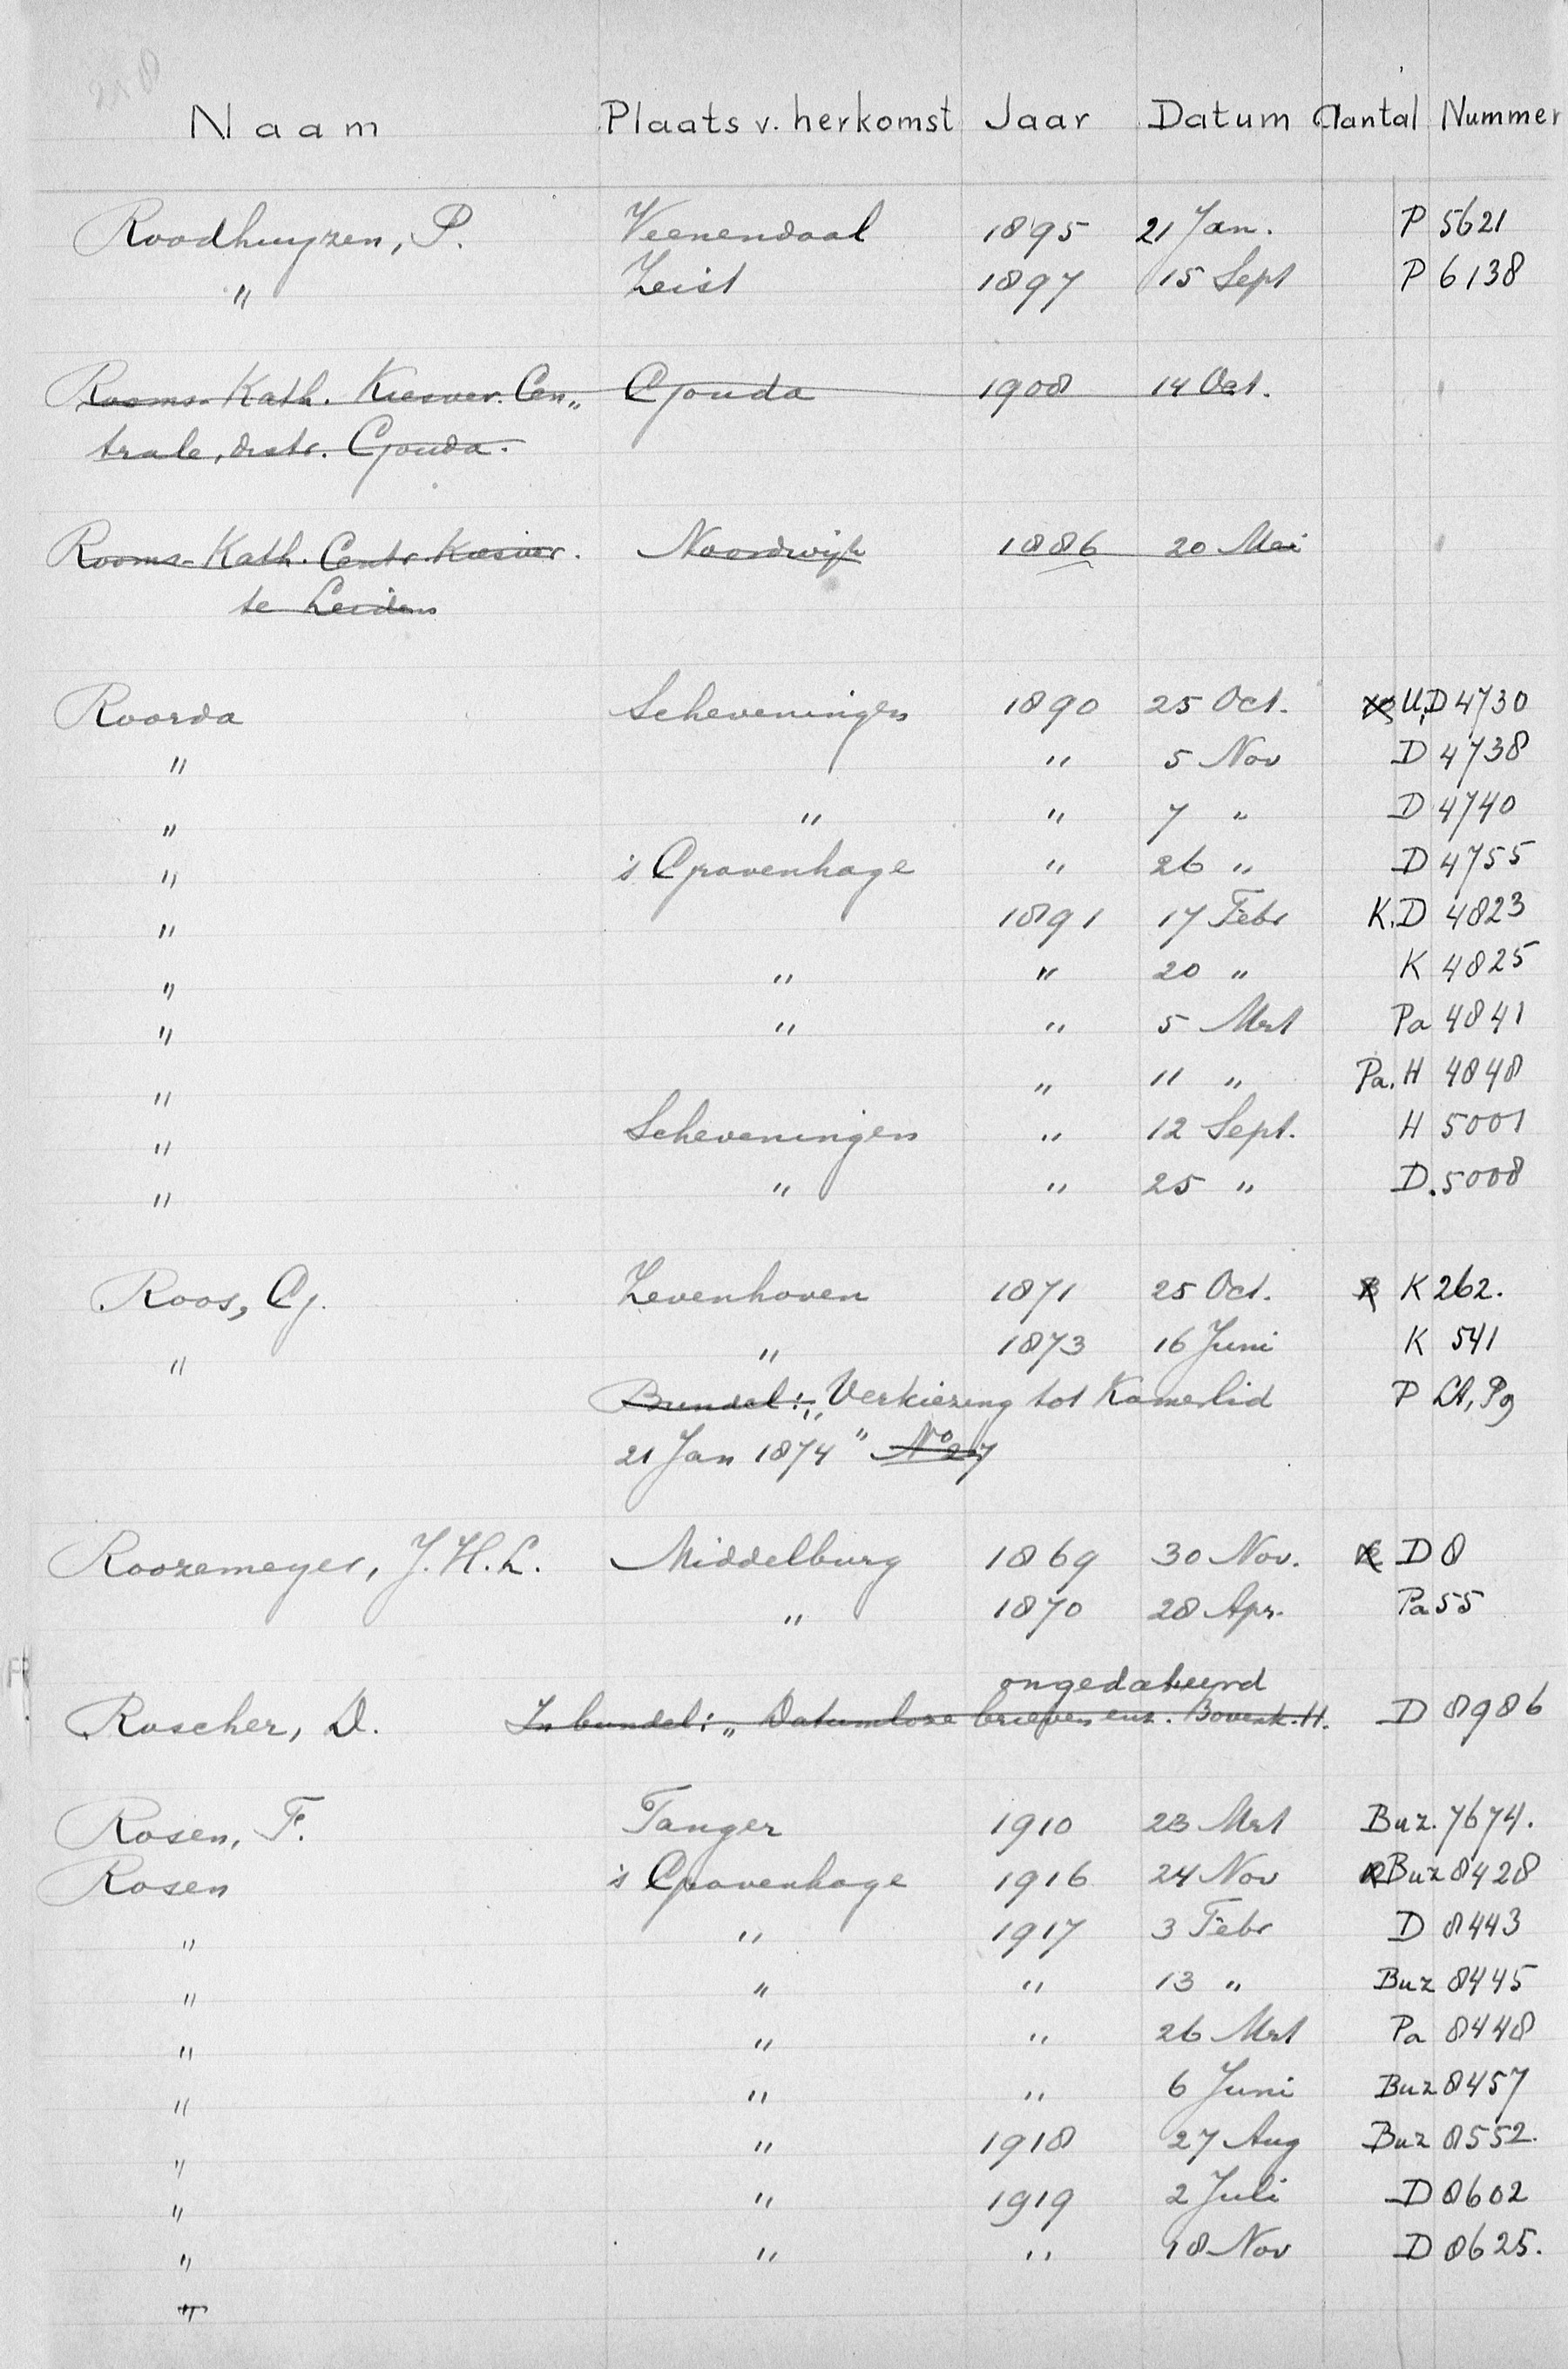 Naam Plaats v. herkomst Jaar Datum Aantal Nummer
Roodhuyzen, P. Veenendaal 1895 21 Jan. P 5621
" Zeist 1897 15 Sept P 6138
Rooms-Kath. Kiesver. Cen„ Gouda 1908 14 Oct.
trale, distr. Gouda.
Rooms-Kath. Centr. Kiesver. Noordwijk 1886 20 Mei
te Leiden
Roorda Scheveningen 1890 25 Oct. U,D 4730
" " 5 Nov D 4738
" " " 7 " D 4740
" 's Gravenhage " 26 " D 4755
" 1891 17 Febr K.D 4823
" " " 20 " K 4825
" " " 5 Mrt Pa 4841
" " 11 " Pa. H 4848
" Scheveningen " 12 Sept. H 5001
" " " 25 " D. 5008
Roos, G. Zevenhoven 1871 25 Oct. K 262.
" " 1873 16 Juni K 541
Bundel: „Verkiezing tot Kamerlid P Lt, Pg
21 Jan 1874" No 27
Roozemeyer, J.H.L. Middelburg 1869 30 Nov. D 8
" 1870 28 Apr. Pa 55
ongedateerd
Roscher, D. In bundel: „Datumlose brieven enz. Bovenk. H. D 8986
Rosen, F. Tanger 1910 23 Mrt Buz. 7674.
Rosen 's Gravenhage 1916 24 Nov Buz 8428
" " 1917 3 Febr D 8443
" " " 13 " Buz 8445
" " " 26 Mrt Pa 8448
" " " 6 Juni Buz 8457
" " 1918 27 Aug Buz 8552.
" " 1919 2 Juli D 8602
" " " 18 Nov D 8625.
"